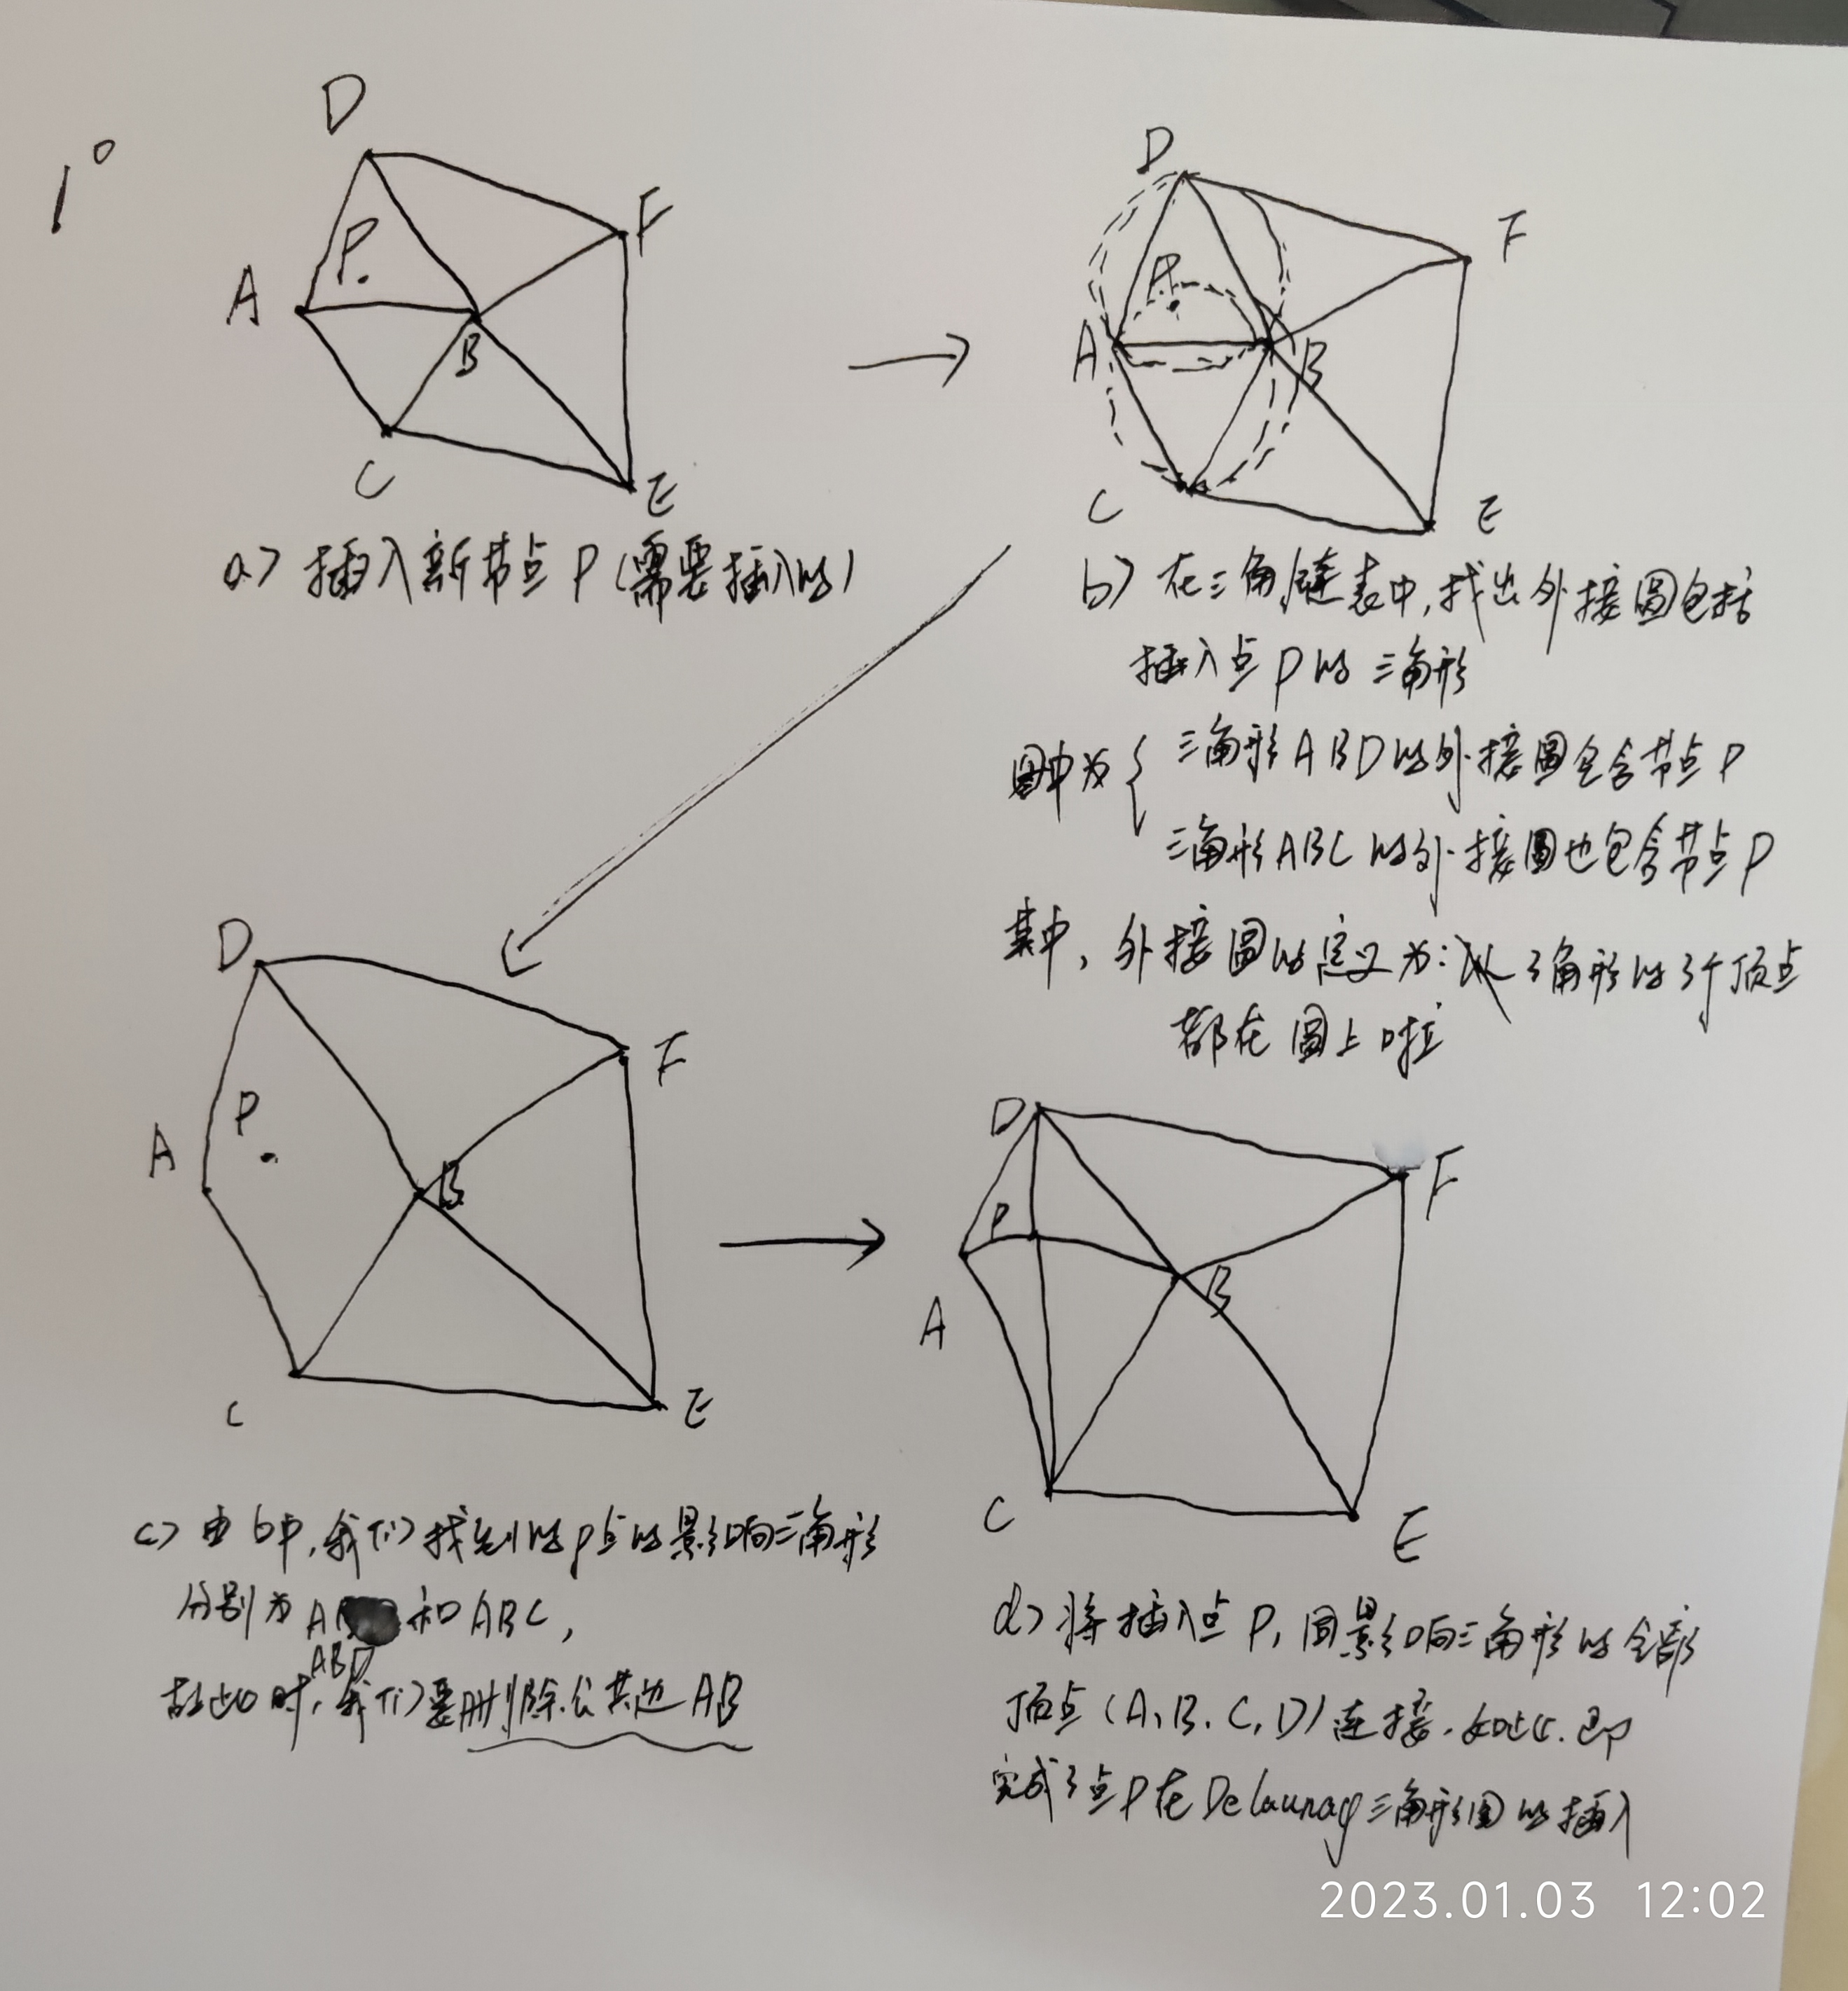 1°
D
F
P
A
B
C
E
a> 插入新节点 P (需要插入的)
D
F
P
A
B
C
E
b) 在三角链表中,找出外接圆包括
插入点 P 的 三角形
图中为 { 三角形 ABD 的外接圆包含节点 P
三角形 ABC 的外接圆也包含节点 P
其中, 外接圆的定义为: 三角形的3个顶点
都在圆上啦
D
F
P
A
B
C
E
c) 由 b 中, 我们找到的 P 点的影响三角形
分别为 ABD 和 ABC,
故此时, 我们要删除公共边 AB
D
F
P
B
A
C
E
d> 将插入点 P, 同影响三角形的全部
顶点 (A, B, C, D) 连接. 如此. 即
完成了点 P 在 Delaunay 三角形图的插入
2023.01.03 12:02